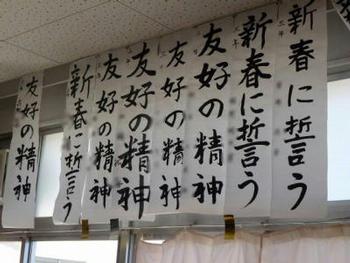 新春に誓う
新春に誓う
友好の精神
友好の精神
友好の精神
友好の精神
新春に誓う
友好の精神